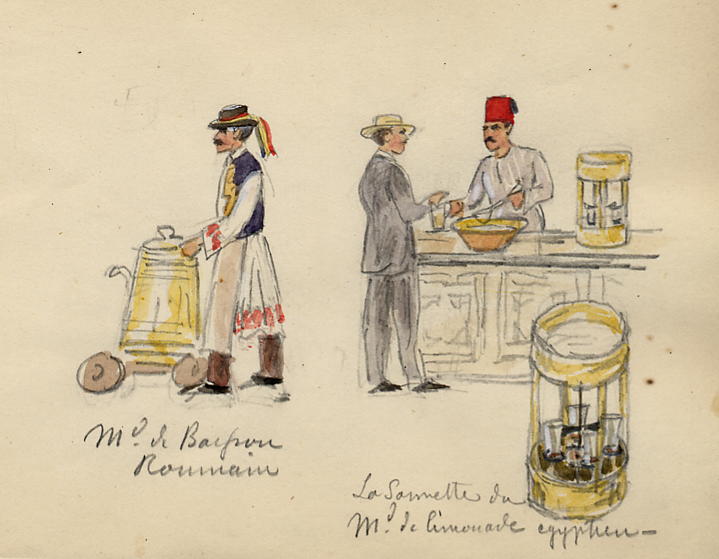 Md. de Boisson
Roumain
La Sonnette du
Md. de limonade egyptien –